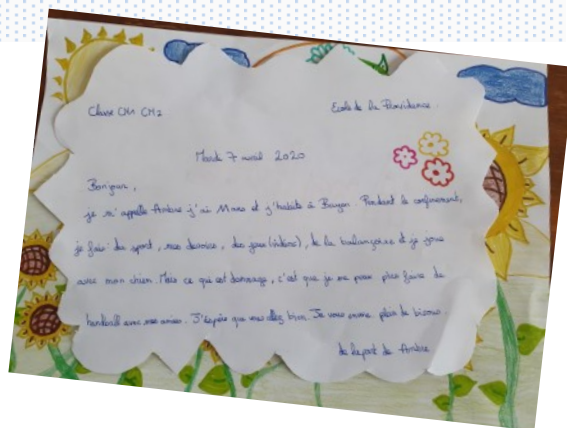 Classe CM1 CM2 Ecole de la Providence.
Mardi 7 avril 2020
Bonjour,
je m'appelle Ambre j'ai 11 ans et j'habite à Bayon. Pendant le confinement,
je fais du sport, mes devoirs, des jeux (vidéos), de la balançoire et je joue
avec mon chien. Mais ce qui est dommage, c'est que je ne peux plus faire de
handball avec mes amies. J'espère que vous allez bien. Je vous envoie plein de bisous.
de la part de Ambre